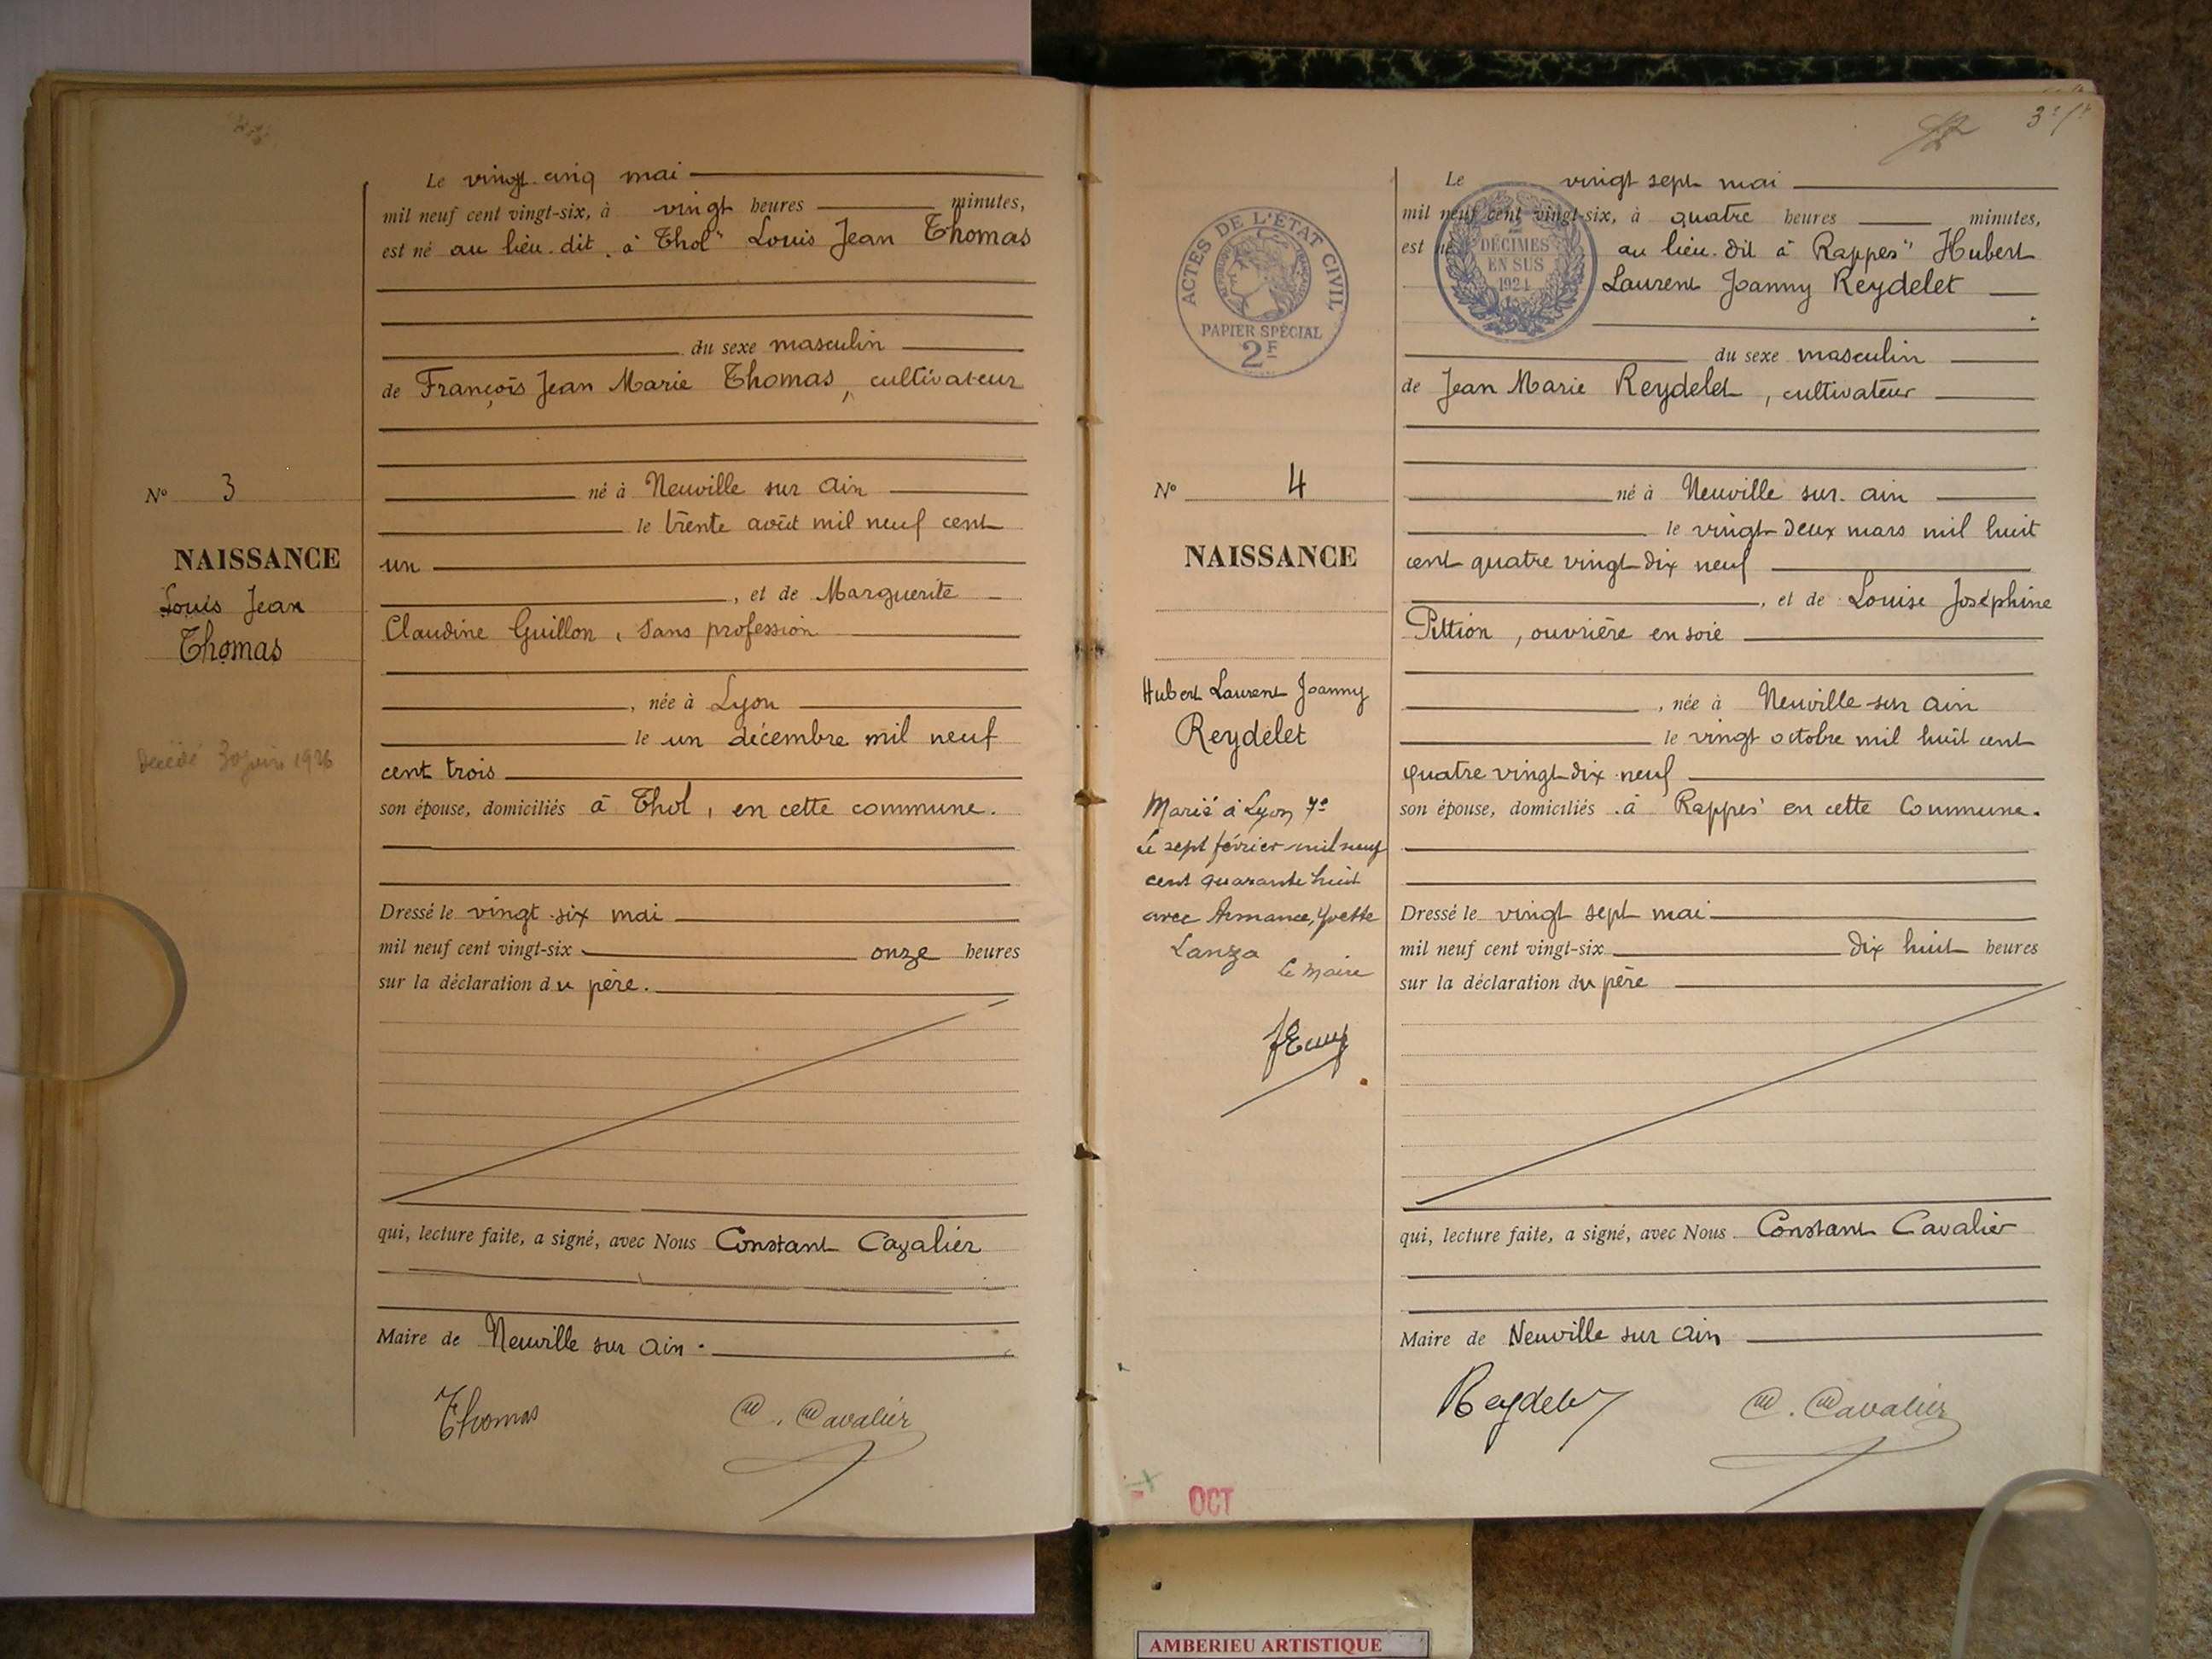 Le vingt cinq mai
mil neuf cent vingt-six, à vingt heures minutes,
est né au lieu dit "à Thol" Louis Jean Thomas
du sexe masculin
de François Jean Marie Thomas, cultivateur
né à Neuville sur ain
le trente août mil neuf cent
un
, et de Marguerite
Claudine Guillon, sans profession
, née à Lyon
le un décembre mil neuf
cent trois
son épouse, domiciliés à Thol, en cette commune.
Dressé le vingt six mai
mil neuf cent vingt-six onze heures
sur la déclaration du père.
qui, lecture faite, a signé, avec Nous Constant Cavalier
Maire de Neuville sur ain.
Thomas C. Cavalier
N° 3
NAISSANCE
Louis Jean
Thomas
Décédé 30 juin 1926
ACTES DE L'ÉTAT CIVIL
PAPIER SPÉCIAL
2F
N° 4
NAISSANCE
Hubert Laurent Joanny
Reydelet
Marié à Lyon 7e
le sept février mil neuf
cent quarante huit
avec Armance, Yvette
Lanza
le Maire
OCT
Le vingt sept mai
mil neuf cent vingt-six, à quatre heures minutes,
est né au lieu dit à Rappes" Hubert
Laurent Joanny Reydelet
DÉCIMES
EN SUS
1924
du sexe masculin
de Jean Marie Reydelet, cultivateur
né à Neuville sur ain
le vingt deux mars mil huit
cent quatre vingt dix neuf
, et de Louise Joséphine
Pittion, ouvrière en soie
, née à Neuville sur ain
le vingt octobre mil huit cent
quatre vingt dix neuf
son épouse, domiciliés à Rappes en cette Commune.
Dressé le vingt sept mai
mil neuf cent vingt-six dix huit heures
sur la déclaration du père
qui, lecture faite, a signé, avec Nous Constant Cavalier
Maire de Neuville sur ain
Reydelet C. Cavalier
AMBERIEU ARTISTIQUE